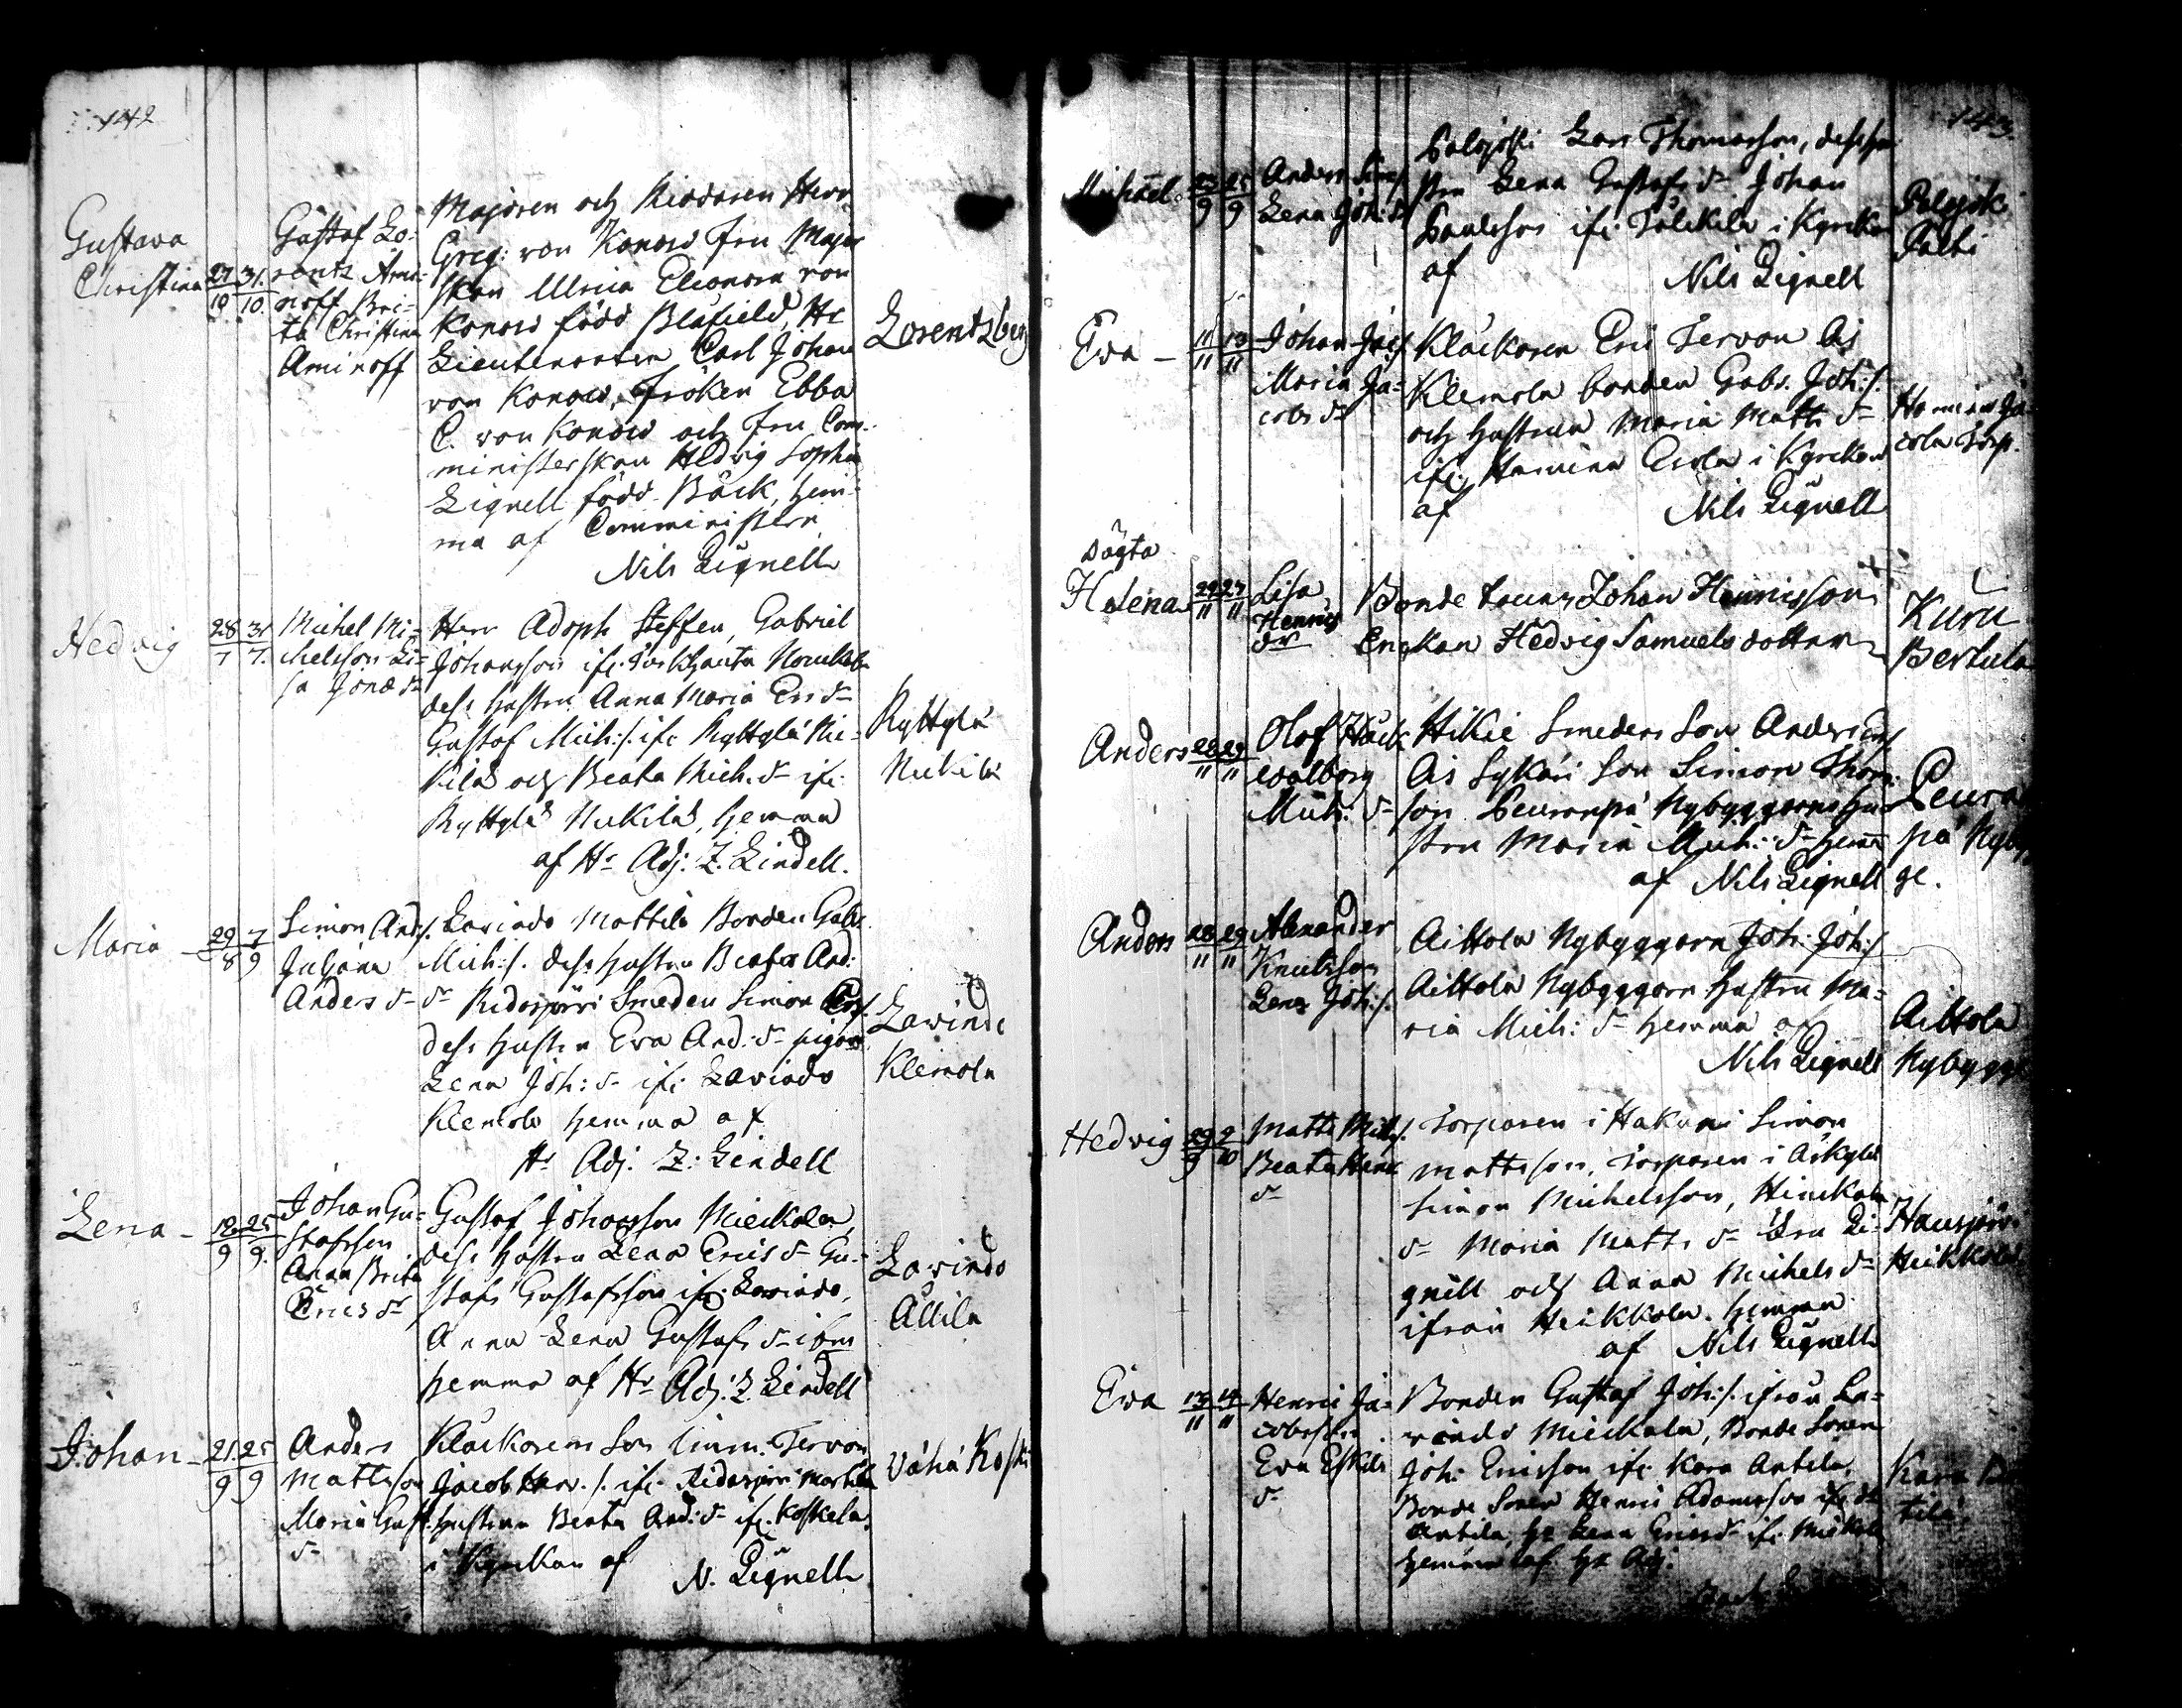 142
Gustava
Christina
27 31.
10 10.
Gustaf Lo-
rentz Ami-
noff Bri-
ta Christina
Aminoff
Majoren och Riddaren Herr
Greg: von Konow Fru Majo
skan Ulrica Eleonora von
Konow född Blåfield, Hr
Lieutenanten Carl Johan
von Konow, Fröken Ebba
C. von Konow och Fru Com-
ministerskan Hedvig Sophia
Lignell född Bäck, hem-
ma af Comministern
Nils Lignell
Lorentzberg
Hedvig
28 31
7 7.
Michel Mi-
chelsson Li-
sa Jonæ dr
Herr Adoph Steffen, Gabriel
Johansson ifr.
dess hustru Anna Maria Ers dr
Gustaf Mich:s. ifr Ryttylä
kilä och Beata Mich. dr ifr.
Ryttylä Nukilä, hemma
af Hr Adj: Z. Lindell.
Ryttylä
Nukilä
Maria
29 7
8 9
Simon And:s.
Juliana
Anders dr
Lavindo Mattila Bonden Gabr
Mich:s. dess hustru Beata And:
dr Ridasjärvi Smeden Simon
dess hustru Eva And: dr pigan
Lena Joh: dr ifr Lavindo
Klemola hemma af
Hr Adj: Z: Lindell
Lavindo
Klemola
Lena
19 25
9 9.
Johan Gu-
stafsson
Anna Brita
Erics dr
Gustaf Johansson Mieckola,
dess hustru Lena Erics dr Gu-
stafs Gustafsson ifr. Lavindo,
Anna Lena Gustafs dr ibm
hemma af Hr Adj: Z. Lindell
Lavindo
Allila
Johan
21. 25
9 9
Anders
Mattsson
Maria Gust.
dr
Klåckarens Son Tervon
Jacob s. ifr. Ridasjärvi Martila
hustrun Beata And: dr ifr. Koskela,
i Kyrckan af N. Lignell
Vähä Koski
143.
Michael
23 25
9 9
Anders Sims
Lena Joh: dr
Palojoki Lars Thomasson, dess hu
stru Lena Gustafs dr Johan
Paulsson ifr. i Kyrckan
af Nils Lignell
Palojoki
Palti
Eva
11 13
11 11
Johan Jac:s
Maria Ja-
cobs dr
Klåckaren Eric Tervon
Klemola bonden Gabr. Joh:s.
och hustrun Maria Matts dr
ifr. Hamina Erola i Kyrckan
af Nils Lignell
Hamina Ja-
cola Torp.
oägta
Helena
22 27
11 11
Lisa
Henrics
dr
Bonde Johan Henricsson
Enckan Hedvig Samuels dotter
Kuru
Bertula
Anders
28 29
11 11
Olof Häck
Walborg
Mich: dr
Hikie Smedens Son Anders
Ais Sykäri Son Simon Thom
son Peuranpä Nybyggarens hu
stru Maria Mich: dr hemma
af Nils Lignell
Peuran
pä Nybyg
ge.
Anders
28 29
11 11
Alexander
Knutsson
Lena Joh:s.
Aittola Nybyggarn Joh: Joh:s
Aittola Nybyggarn hustru Ma-
ria Mich: dr hemma af
Nils Lignell
Aittola
Nybygge
Hedvig
29 2
9 10
Matts Mich:s.
Beata Henr
dr
Torparen i Hakuni Simon
Mattsson, Torparen i Äikylä
Simon Michelsson,
dr Maria Matts dr Fru Li-
gnell och Anna Michels dr
ifrån Heikkola. hemma
af Nils Lignell
Hausjärvi
Heikkola.
Eva
13 14
11 11
Henric Ja-
cobsson
Eva Eskils
dr
Bonden Gustaf Joh:s. ifrån La-
vindo Mieckala, Bonde Sonen
Joh: Ericsson ifr Kara Antila,
Bonde Sonen Henric Adamsson ifr
Antila, hr Lena Erics dr ifr. Mickola
hemma af Hr Adj.
Kara
tila